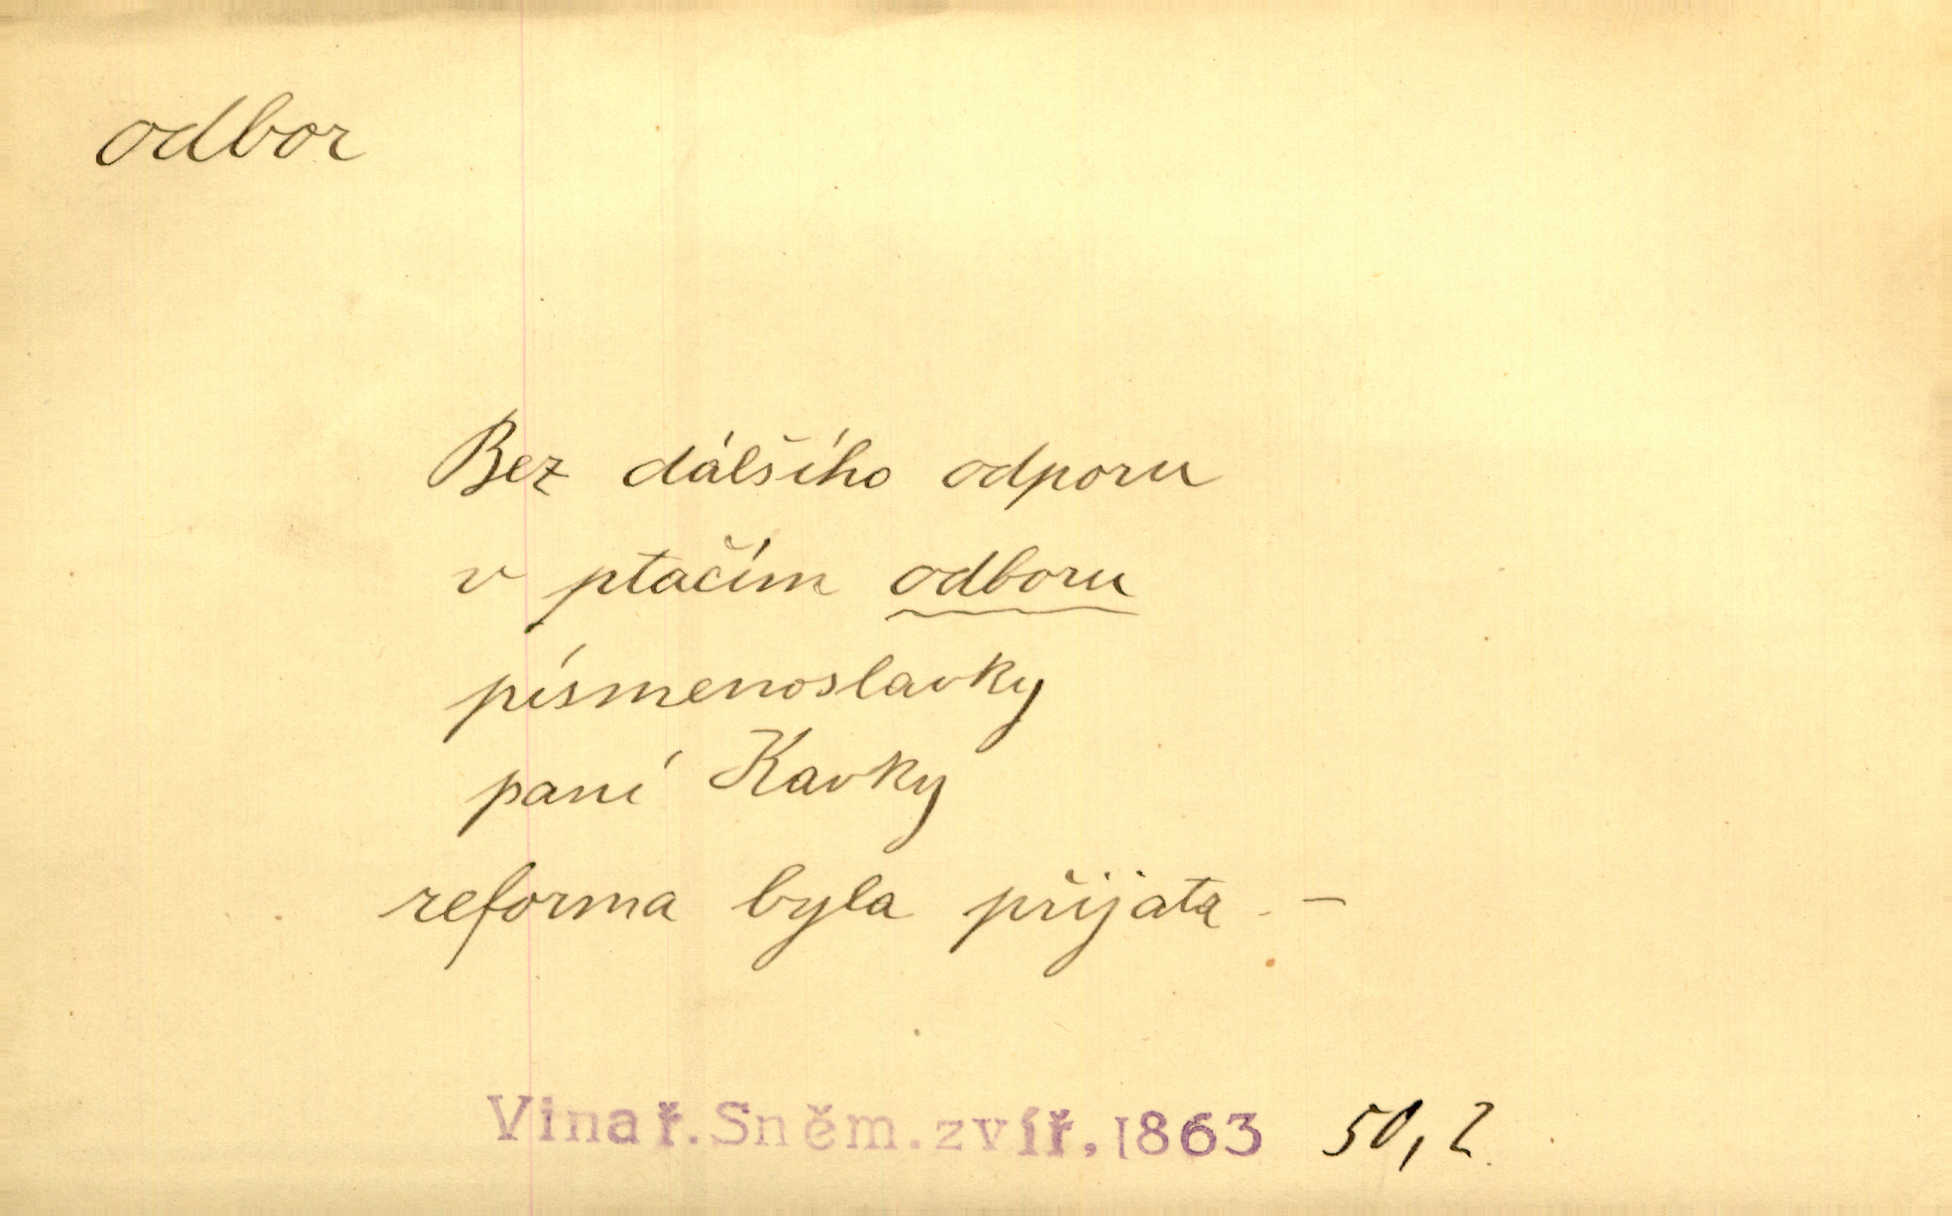 odbor
Bez dálšího odporu
v ptačím odboru
písmenoslavky
paní Kavky
reforma byla přijata. –
Vinař.Sněm.zvíř,1863 50,2